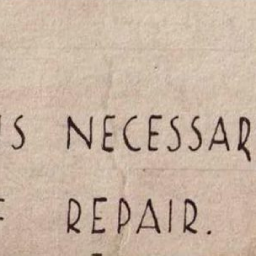 IS NECESSAR
F REPAIR.